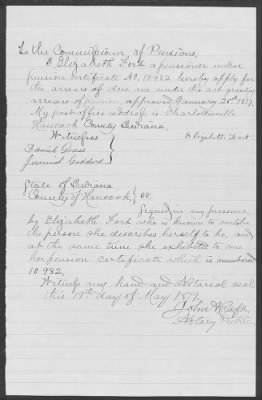 To the Commissioner of Pensions;
I Elizabeth Fort a pensioner under
pension certificate No. 10982, hereby apply for
the arrears of due me under the act granting
arrears of pension, approved January 25th 1879.
My post office address is Charlottsville
Hancock County Indiana.
Witnesses
Elizabeth Fort
Daniel
Jeremiah Goddard
State of Indiana
County of Hancock } SS:
Signed in my presence
by Elizabeth Fort who is known to me to be
the person she describes herself to be, and
at the same time she exhibited to me
her pension certificate which is numbered
10.982,
Witness my hand and Notarial seal
this 19th day of May 1879,
John
Notary Public